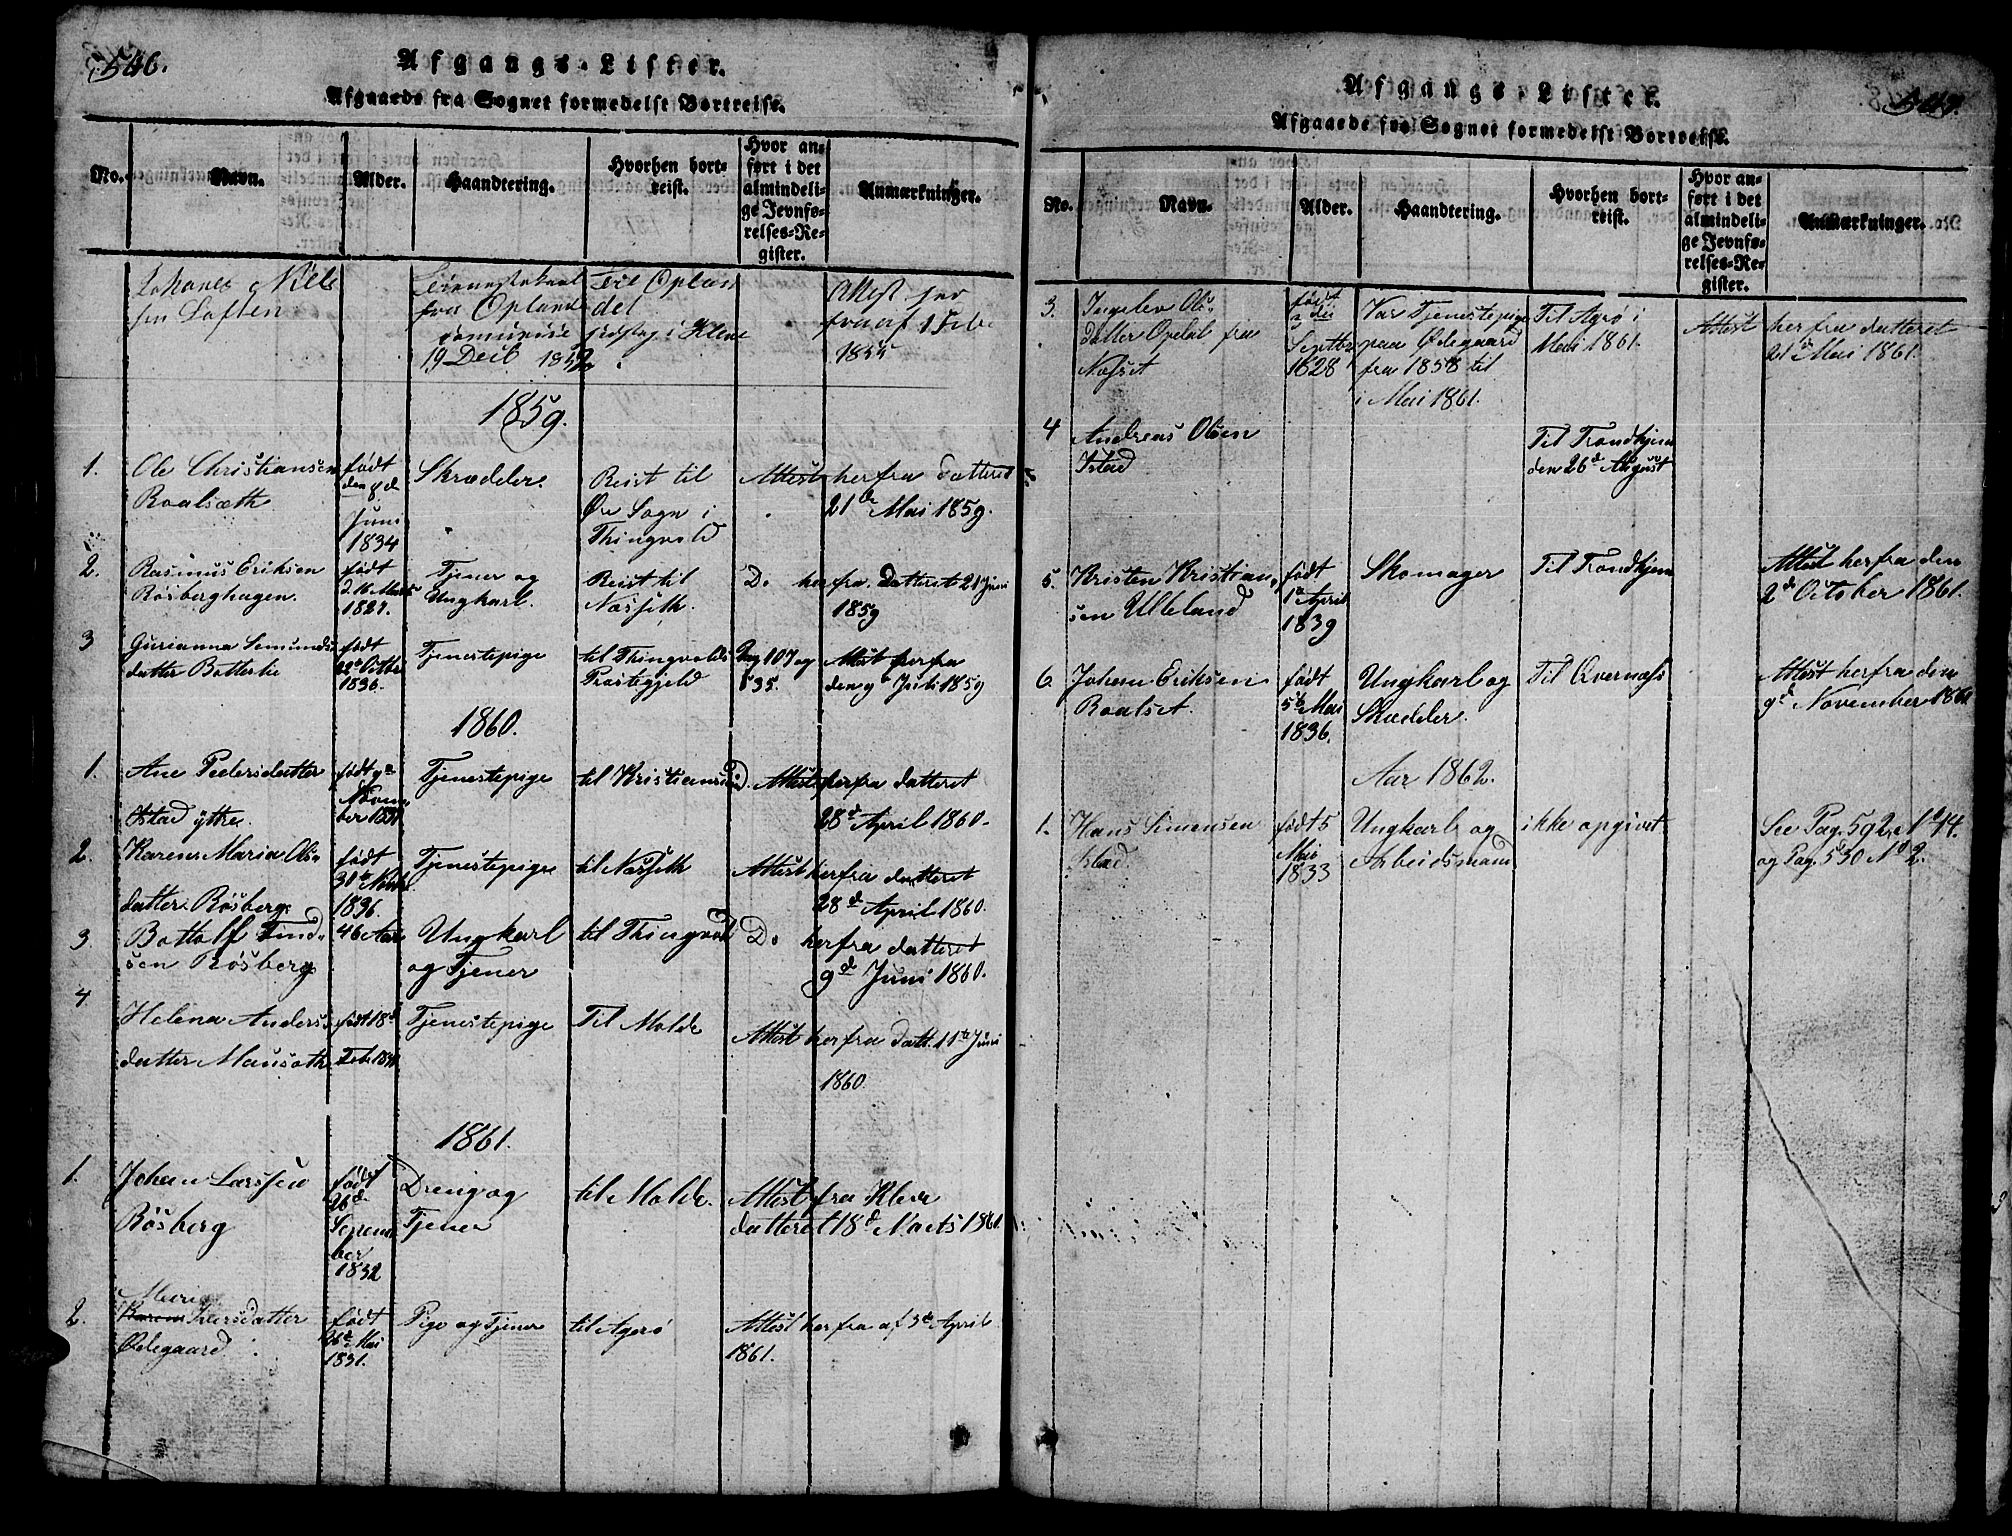 546.
Afgangs-Lister.
Afgaaede fra Sognet formedelst Bortreise.
No.
Navn.
Alder.
Haandtering.
Hvorhen bort-
reist.
Hvor an-
ført i det
almindeli-
ge Jevnfø-
relses-Re-
gister.
Anmærkninger.
19 Decb
1859.
1.
Ole Christiansen
Roalsæth
født
den 8de
Juni
1834
Skrædder.
Reist til
Øre Sogn i
Thingvold
Attest herfra datteret
21de Mai 1859.
2.
Rasmus Eriksen
Røsberghagen.
født
1827.
Tjener og
Ungkarl.
Reist til
Næsseth.
Do herfra datteret 21 Juni
1859
3
Gurianna Semunds-
datter
født
22de Octbr
1836.
Tjenestepige
til Thingvolds
Præstegjeld
Pag 107 og
535.
Attest herfra
den 9de Juli 1859
1860.
1.
Ane Pedersdatter
Istad ytre.
født 9de
Novem-
ber
Tjenestepige
til Kristiansund.
Attest herfra datteret
28de April 1860.
2.
Karen Maria Ols-
datter Røsberg
født
30te
1836.
Tjenestepige
til Næsseth
Attest herfra datteret
28de April 1860.
3.
Bottolf
sen Røsberg
46 Aar
Ungkarl
og Tjener
til Thingvold
Do herfra datteret
9de Juni 1860.
4
Helena Anders-
datter
født 18de
Feb
Tjenestepige
Til Molde
Attest herfra datt. 11te Juni
1860.
1861.
1.
Johan Larssen
Røsberg
født
26de
Septem-
ber
1832
Dreng og
Tjener
til Molde.
Attest fra Kleve
datteret 18de Marts 1861.
2.
Marie
Karen Iversdatter
Ødegaard
født
26de Mai
1831.
Pige og Tjener
til Agerø
Attest herfra af 3de April
1861.
547.
Afgangs-Lister.
Afgaaede fra Sognet formedelst Bortreise.
No.
Navn.
Alder.
Haandtering.
Hvorhen bort-
reist.
Hvor an-
ført i det
almindeli-
ge Jevnfø-
relses-Re-
gister.
Anmærkninger.
3.
Ingelev Ols-
datter Opdøl fra
Næsset
født
Septbr
1828
Var Tjenestepige
paa Ødegaard
fra 1858 til
i Mai 1861.
Til Agrø i
Mai 1861.
Attest herfra datteret
21de Mai 1861.
4
Andreas Olsen
Istad
Til Trondhjem
den 26de August
5.
Kristen Kristian-
sen Ulleland
født
1te April
1839
Skomager
Til Trondhjem
Attest herfra den
2de October 1861.
6.
Johan Eriksen
Roalset.
født
5te Mai
1836.
Ungkarl og
Skrædder.
Til Qvernæss
Attest herfra den
9de November 1861
Aar 1862.
1.
Hans Simensen
Istad.
født 5
Mai
1833
Ungkarl og
Arbeidsmand
ikke opgivet
See Pag. 592
og Pag. 530 No 2.